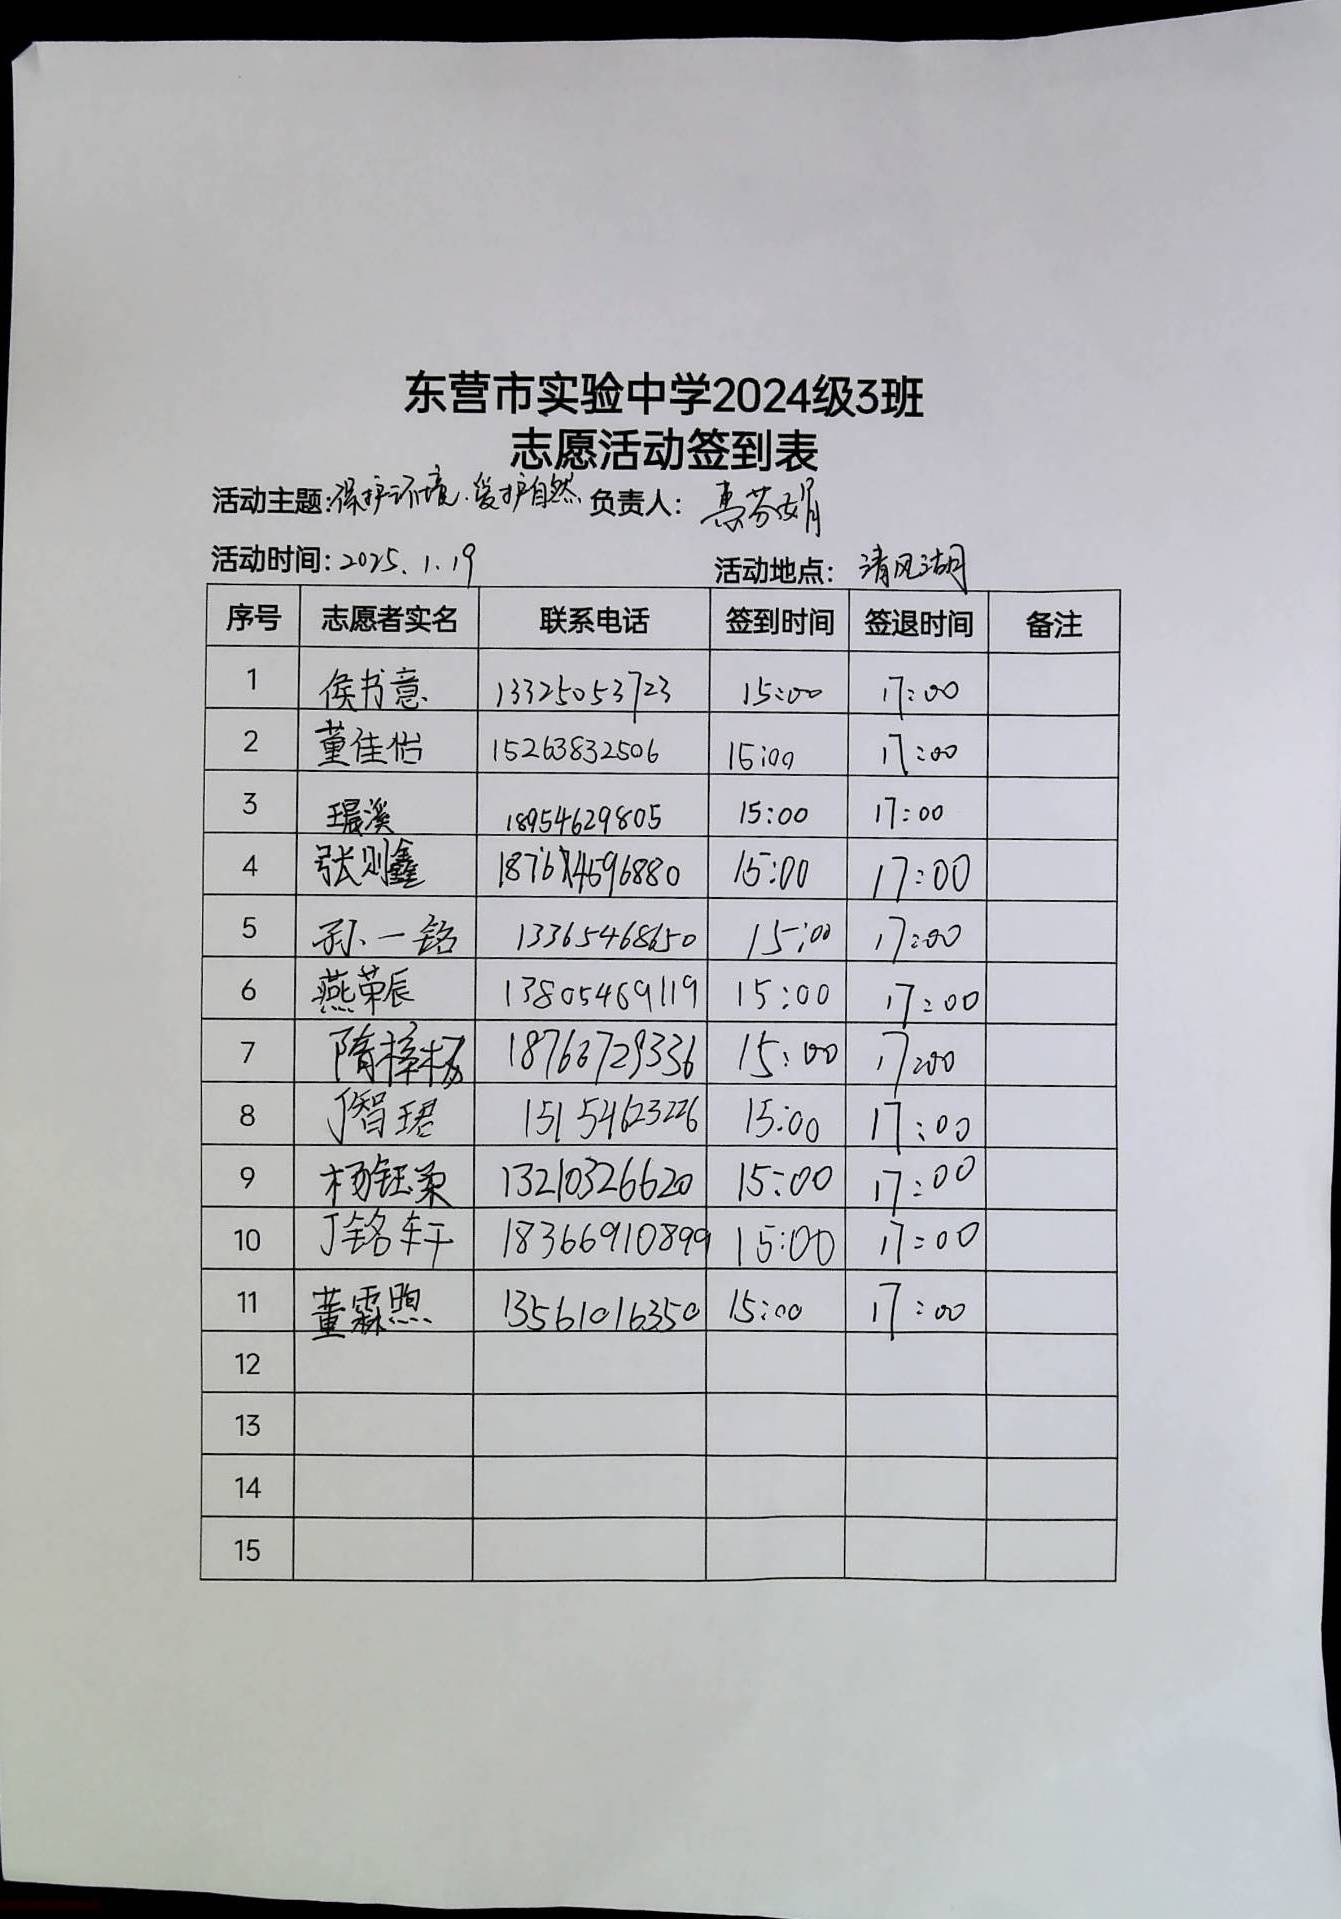 东营市实验中学2024级3班
志愿活动签到表
活动主题:保护环境.爱护自然 负责人: 惠芬娟
活动时间: 2025.1.19 活动地点: 清风湖
序号 志愿者实名 联系电话 签到时间 签退时间 备注
1 侯书意 13325053723 15:00 17:00
2 董佳怡 15263832506 15:00 17:00
3 18954629805 15:00 17:00
4 张则鑫 15:00 17:00
5 孙一铭 13365468650 15:00 17:00
6 燕荣辰 13805469119 15:00 17:00
7 隋梓杨 18766729336 15:00 17:00
8 丁智珺 15154623226 15:00 17:00
9 杨钰柔 13210326620 15:00 17:00
10 丁铭轩 18366910899 15:00 17:00
11 董霖煦 13561016350 15:00 17:00
12
13
14
15